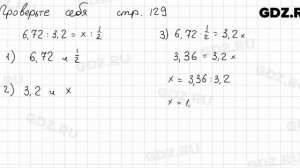 Проверьте себя стр. 129
GDZ.RU
6,72 : 3,2 = x : 1/2
1) 6,72 и 1/2
2) 3,2 и x
3) 6,72 · 1/2 = 3,2x
3,36 = 3,2x
x = 3,36 : 3,2
x = 1,
GDZ.RU